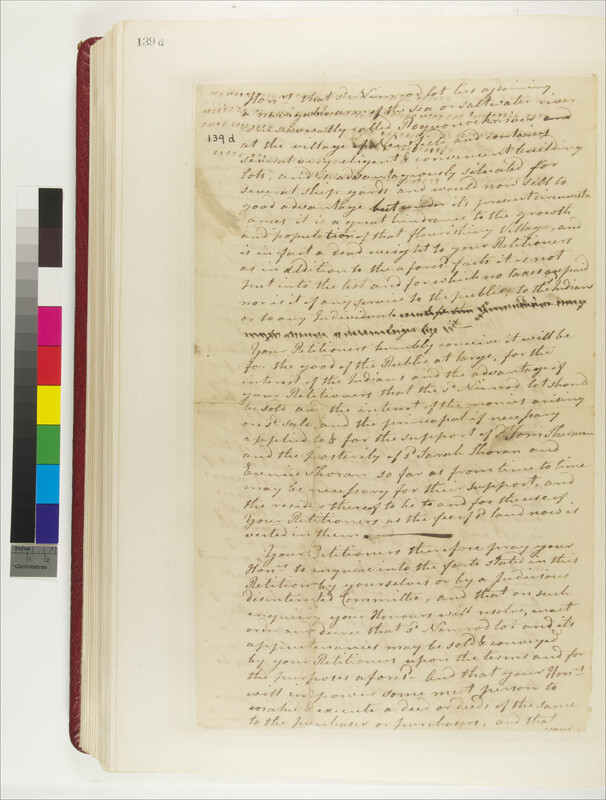 139 d
Hon.rs that s.d Nimrod lot lies adjoining
a navigable of the sea or saltwater river
universally called Poquonock river and
139 d
at the village of Newfield and contains
several very eligent & convenient building
lots, and is advantagiously situated for
several ship yards and would now sell to
good advantage but under its present circumst
ances it is a great hindrance to the growth
and population of that flourishing Village, and
is in fact a dead weight to your Petitioners
as in addition to the afores.d facts it is not
put into the list and for which no taxes are paid
nor is it of any service to the public, to the Indians
or to any Individual
Your Petitioners humbly conceive it will be
for the good of the Public at large, for the
interest of the Indians and the advantage of
your Petitioners that the s.d Nimrod lot should
be sold and the interest of the monies arising
on s.d sale and the principal if necessary
applied to & for the support of s.d Tom Sherman
and the posterity of s.d Sarah Shoran and
Eunice Shoran so far as from time to time
may be necessary for their support, and
the residue thereof to be to and for the use of
Your Petitioners as the fee of s.d land now is
vested in them
Your Petitioners therefore pray your
Hon.rs to enquire into the facts stated in this
Petition by yourselves or by a Judicious
disinterested Committee, and that on such
enquiry your Honours will resolve, enact
order and decree that s.d Nimrod lot and its
appurtenances may be sold & conveyed
by your Petitioners upon the terms and for
the purposes afores.d And that your Hon.rs
will impower some meet person to
make & execute a deed or deeds of the same
to the purchaser or purchasers, and that
your
Inches
1
2
Centimetres